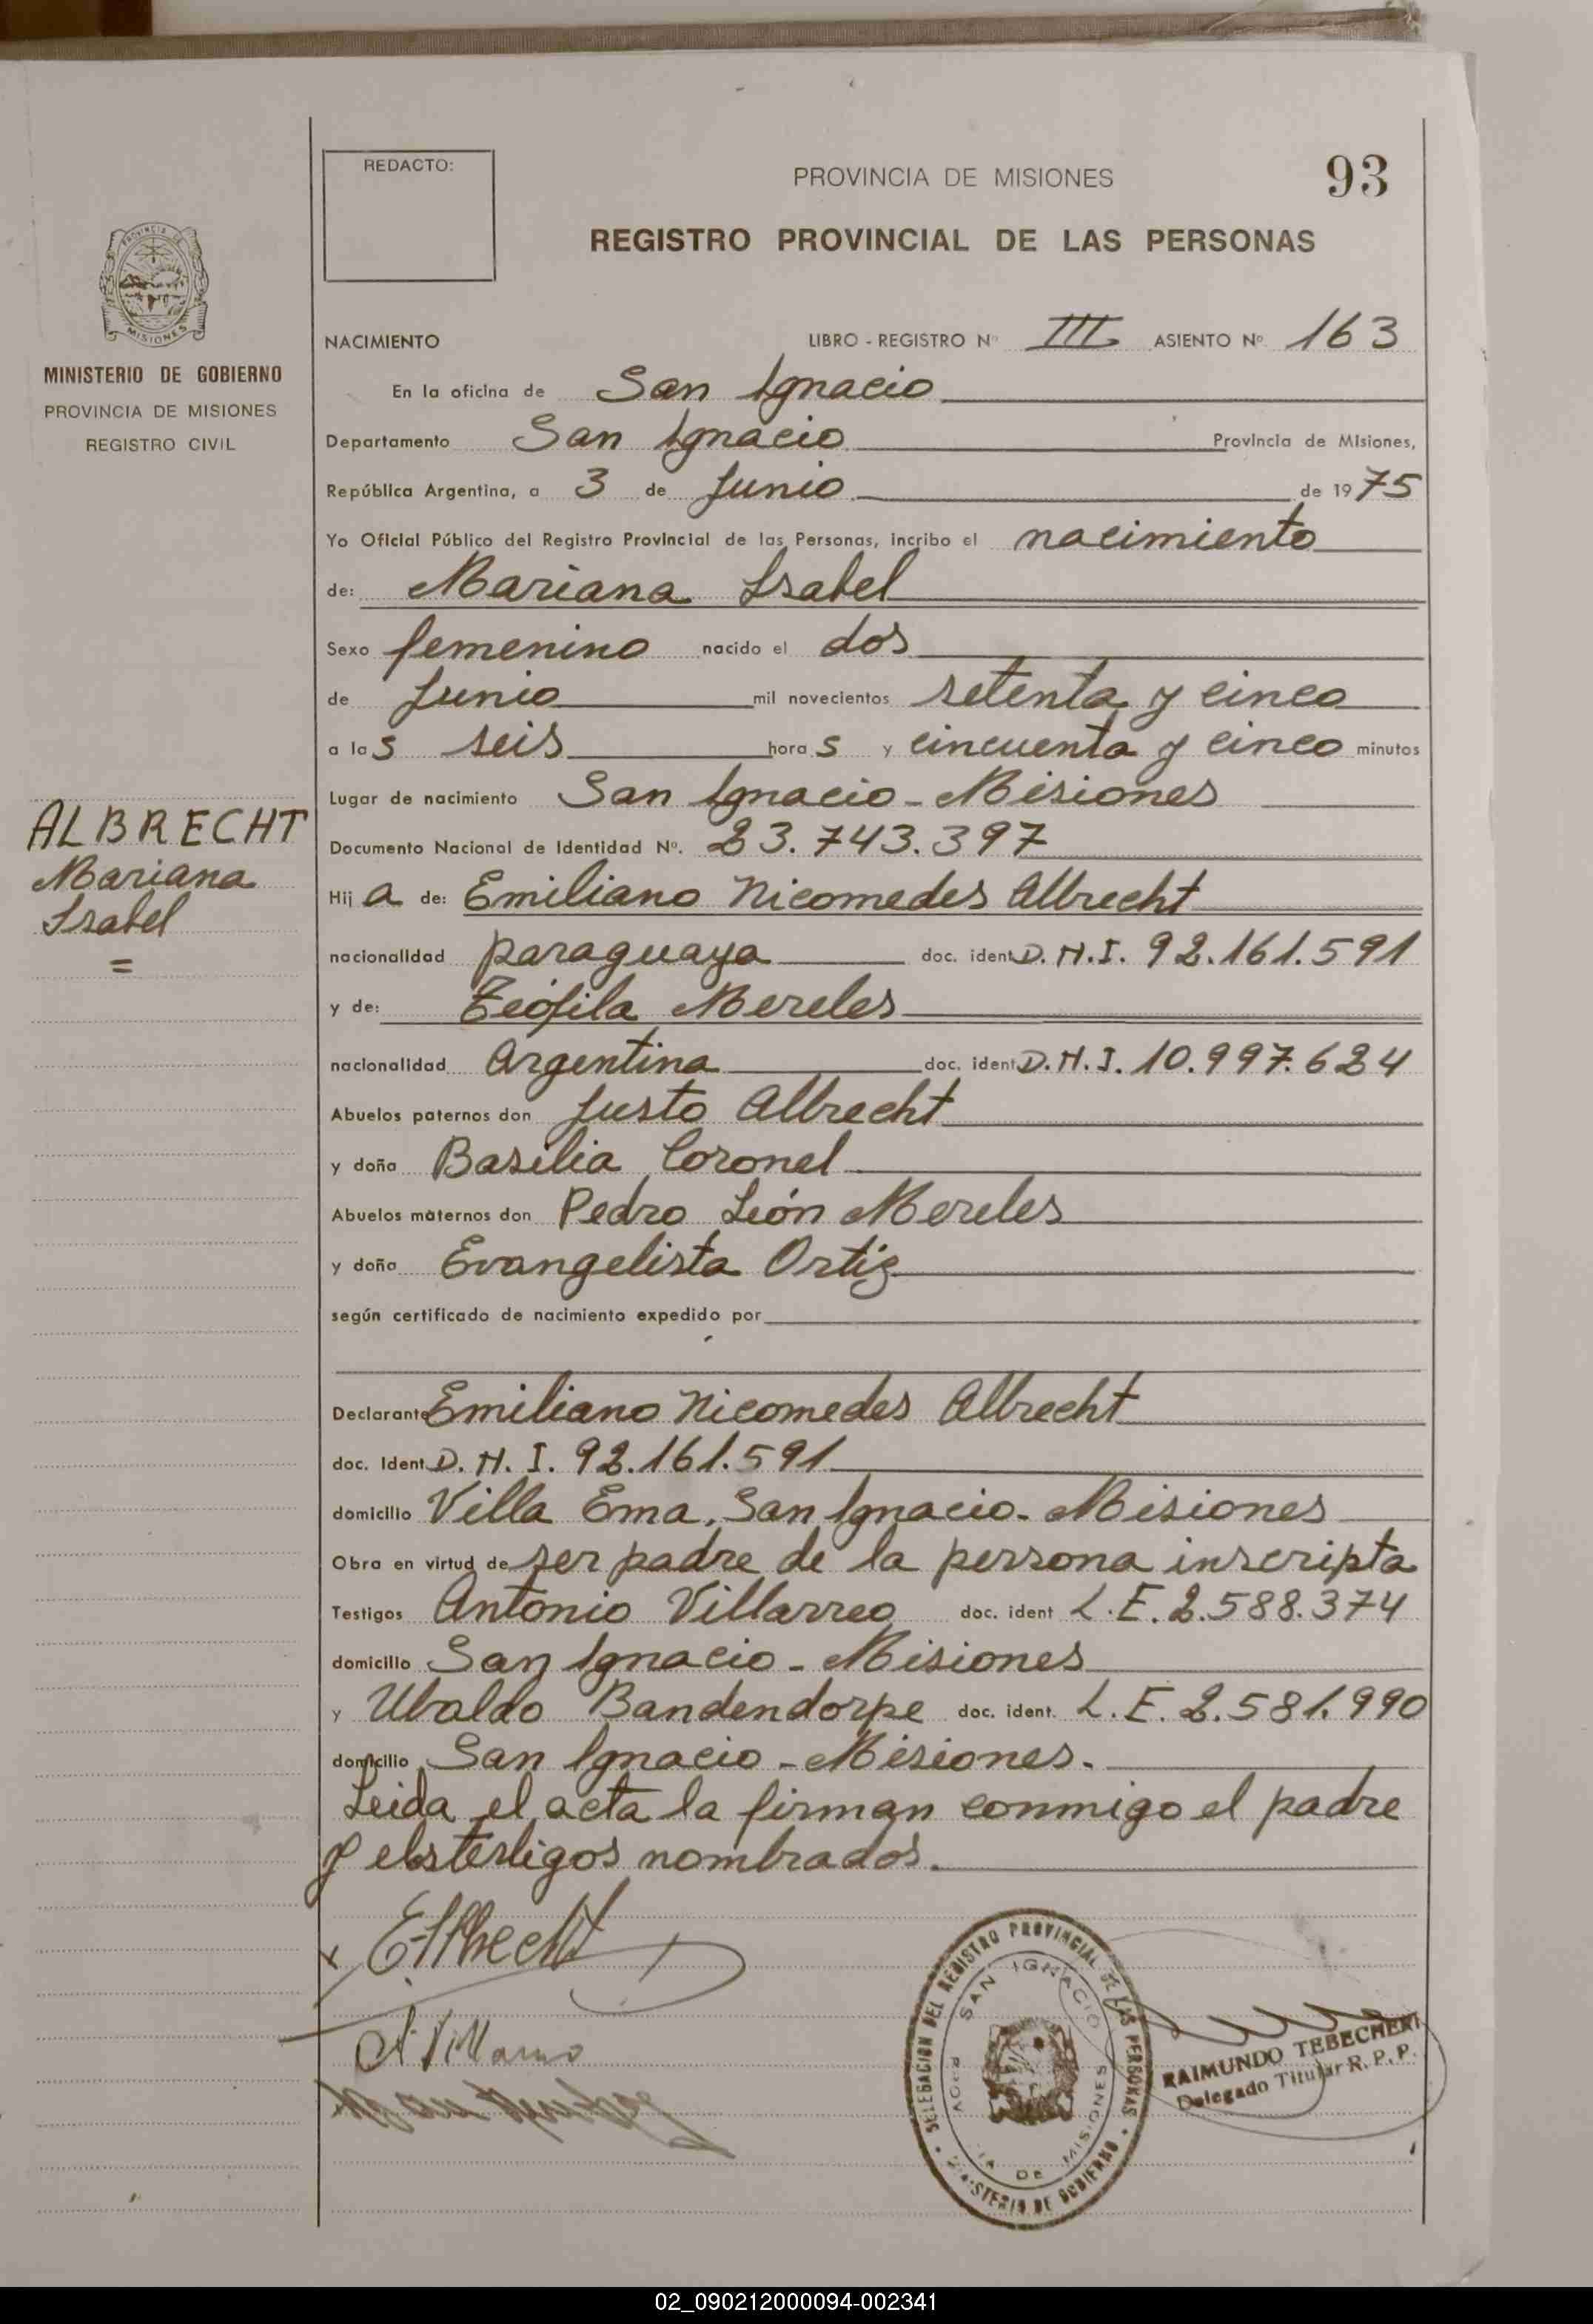 REDACTO:
PROVINCIA DE MISIONES
93
REGISTRO PROVINCIAL DE LAS PERSONAS
PROVINCIA DE
MISIONES
MINISTERIO DE GOBIERNO
PROVINCIA DE MISIONES
REGISTRO CIVIL
ALBRECHT
Mariana
Isabel
=
NACIMIENTO LIBRO - REGISTRO Nº III ASIENTO Nº 163
En la oficina de San Ignacio
Departamento San Ignacio Provincia de Misiones,
República Argentina, a 3 de Junio de 1975
Yo Oficial Público del Registro Provincial de las Personas, incribo el nacimiento
de: Mariana Isabel
Sexo femenino nacido el dos
de Junio mil novecientos setenta y cinco
a las seis horas y cincuenta y cinco minutos
Lugar de nacimiento San Ignacio - Misiones
Documento Nacional de Identidad Nº. 23.743.397
Hija de: Emiliano Nicomedes Albrecht
nacionalidad paraguaya doc. ident D.N.I. 92.161.591
y de: Teófila Mereles
nacionalidad Argentina doc. ident D.N.I. 10.997.624
Abuelos paternos don Justo Albrecht
y doña Basilia Coronel
Abuelos maternos don Pedro León Mereles
y doña Evangelista Ortiz
según certificado de nacimiento expedido por
Declarante Emiliano Nicomedes Albrecht
doc. Ident D.N.I. 92.161.591
domicilio Villa Ema, San Ignacio - Misiones
Obra en virtud de ser padre de la persona inscripta
Testigos Antonio Villarreo doc. ident L.E. 2.588.374
domicilio San Ignacio - Misiones
y Ubaldo Bandendorpe doc. ident. L.E. 2.581.990
domicilio San Ignacio - Misiones.
Leida el acta la firman conmigo el padre
y los testigos nombrados.
EAlbrecht
DELEGACION DEL REGISTRO PROVINCIAL DE LAS PERSONAS
SAN IGNACIO
PROV DE MISIONES
MINISTERIO DE GOBIERNO
RAIMUNDO TEBECHERI
Delegado Titular R. P. P.
02_090212000094-002341